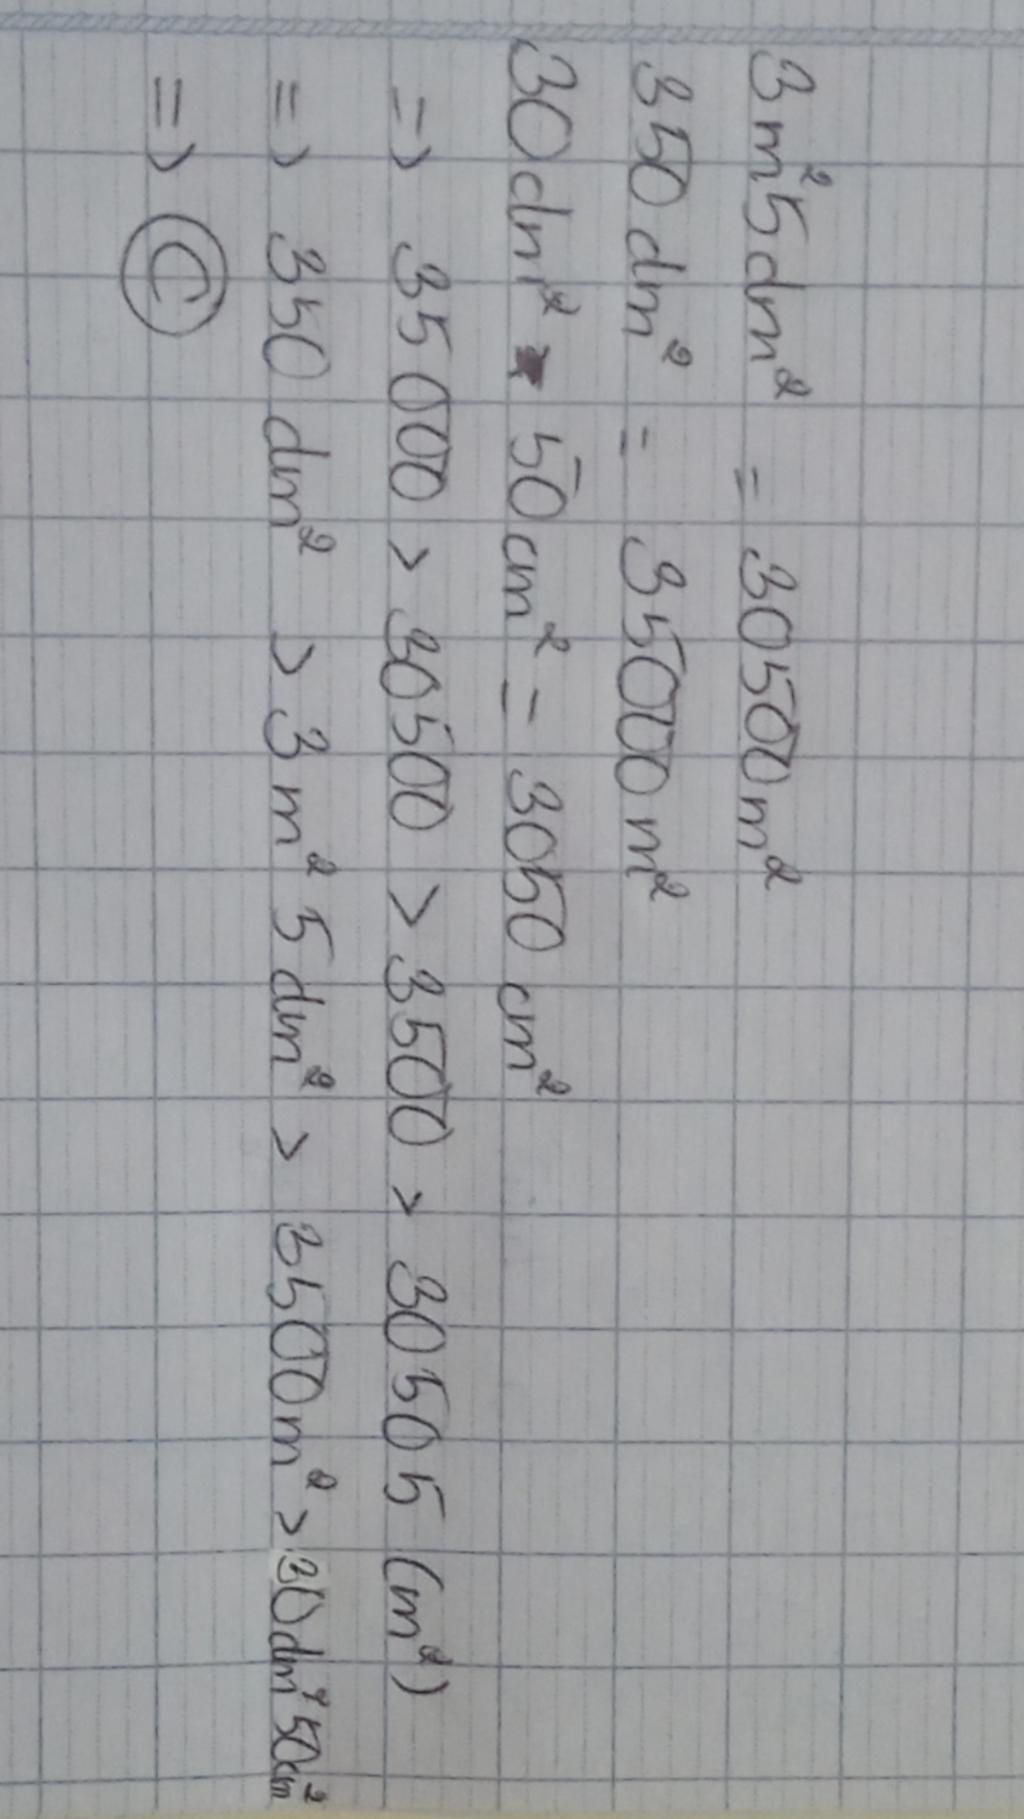 3m²5dm² = 30500m²
350dm² = 35000m²
30dm² 50cm² = 3050cm²
=> 35000 > 30500 > 3500 > 30505 (m²)
=> 350dm² > 3m²5dm² > 3500m² > 30dm²50cm²
=> C